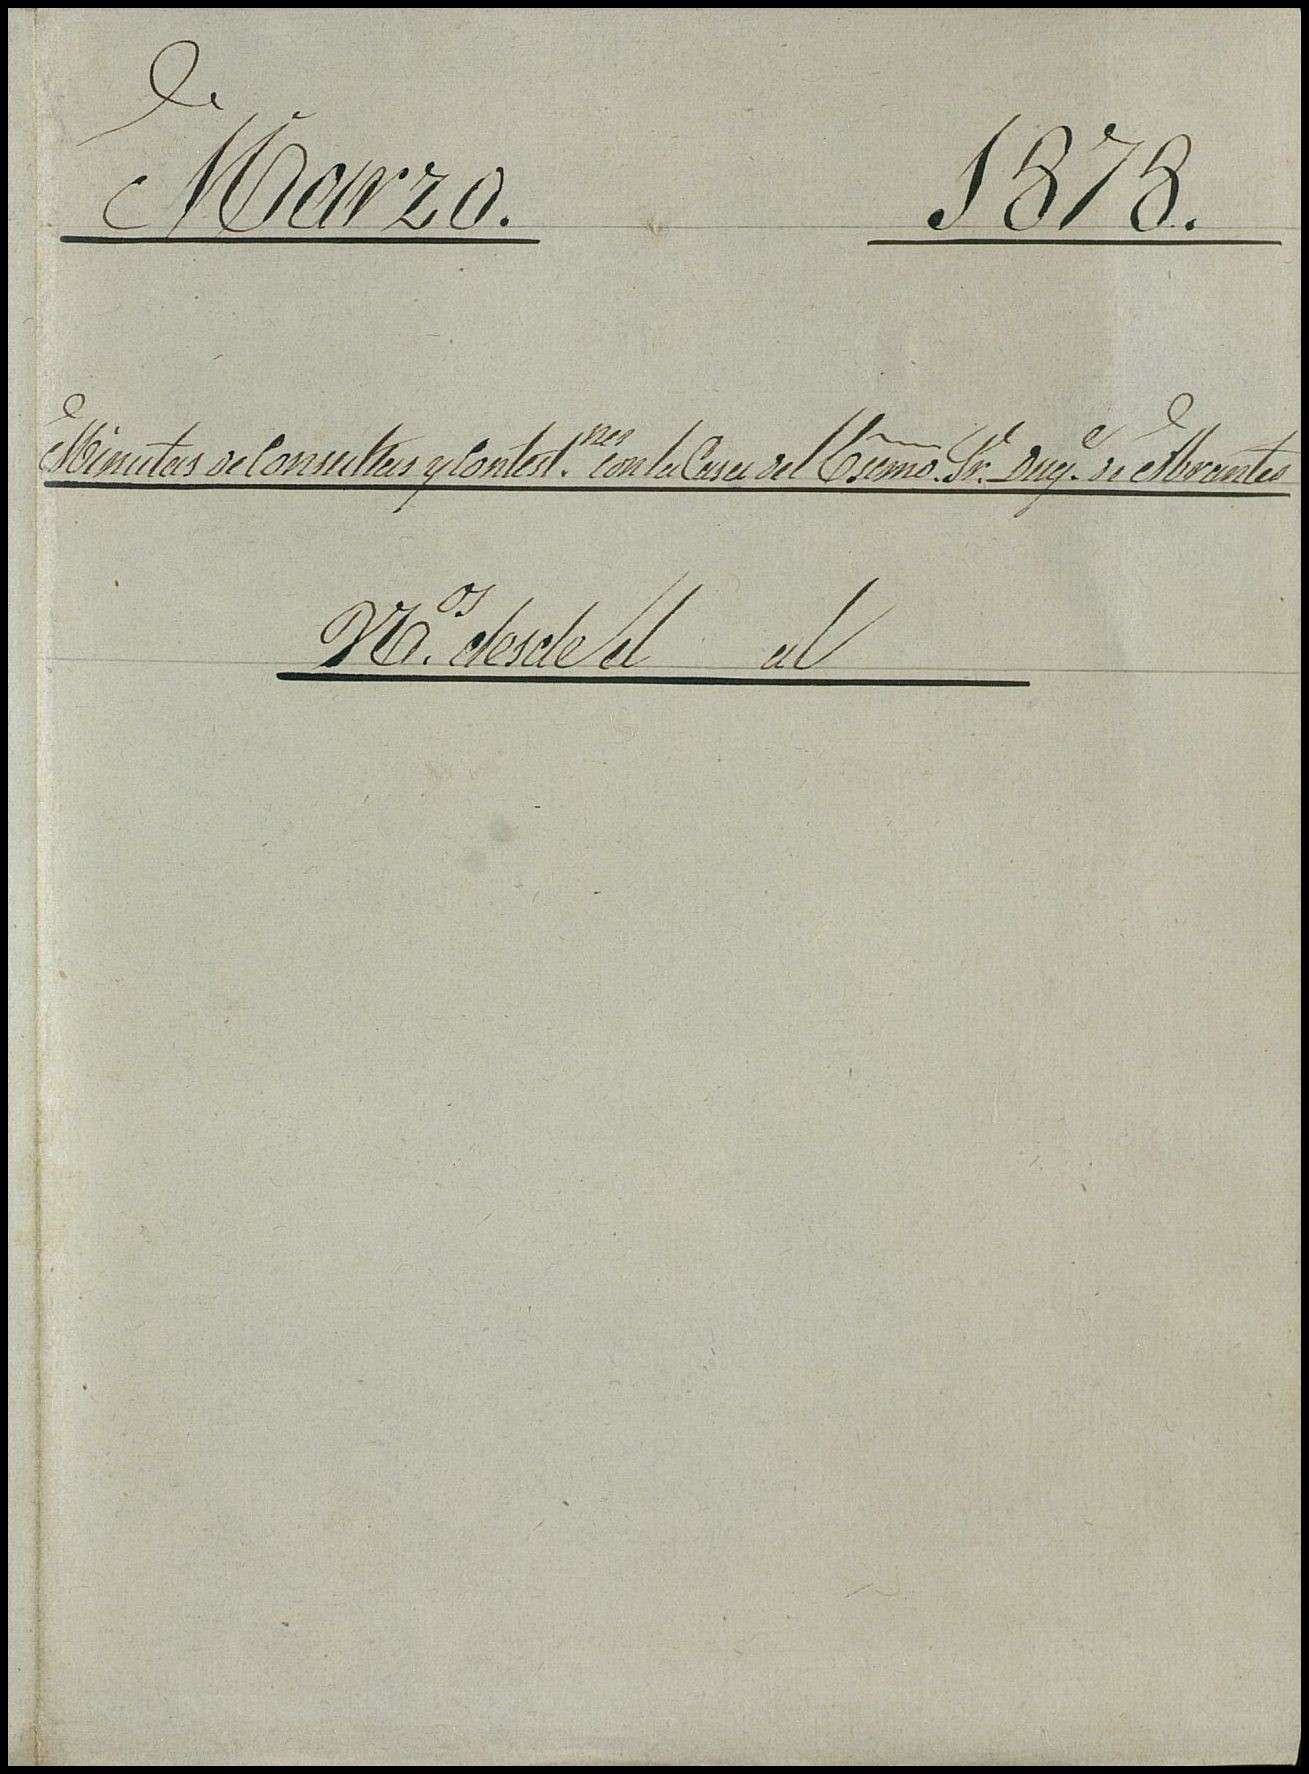 Marzo. 1878.
Minutas de Consultas y Contest.nes con la Casa del Excmo. Sr. Duq.e de Abrantes
N.os desde el al